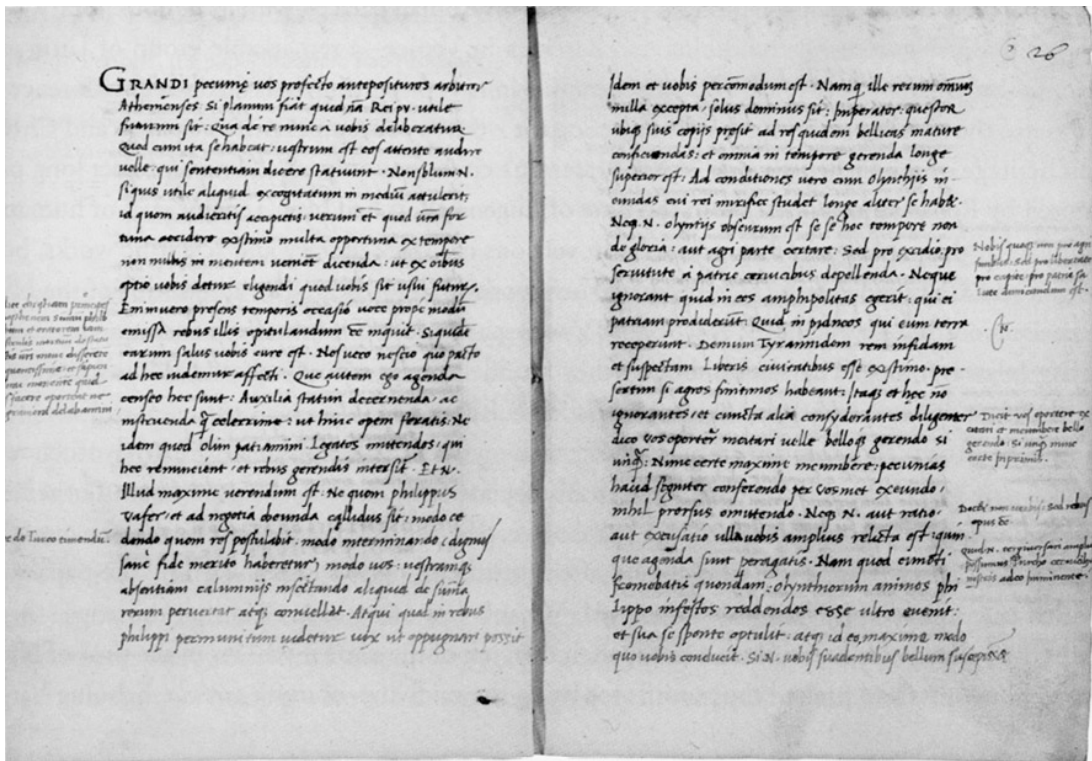 GRANDI pecunię vos profecto anteposituros arbitror
Athenienses. Si planum fiat quod nam Rei pu. utile
futurum sit. Qua de re nunc a vobis deliberatur
Quod cum ita se habeat: vestrum est eos attente audire
velle: qui sententiam dicere statuunt. Non solum N.
si quis utile aliquid excogitatum in medium attulerit,
id quom audieritis accipietis: verum et quod vram for
tuna accidere existimo multa oportuna ex tempore
tum multis in mentem venient dicenda. ut ex oibus
optio vobis detur eligendi quod vobis sit usui futurum.
Enimvero presens temporis occasio voce prope modum
emissa rebus illis opitulandum ee inquit. Siquidem
earum salus vobis cure est. Nos vero nescio quo pacto
ad hec videmur affecti. Que autem ego agenda
censeo hec sunt: Auxilia statim decernenda. ac
instruenda q celerrime: ut hinc opem feratis. Ne
idem quod olim patiamini. Legatos mittendos: qui
hec renuncient. et rebus gerendis intersint. Et N.
Illud maxime verendum est. Ne quom philippus
vafer. et ad negotia obeunda callidus sit: modo ce
dendo quom res postulabit. modo interminando (dignus
sane fide merito haberetur) modo vos: vestramq
absentiam calumnijs insectando aliquid de summa
rerum pervertat atq convellat. Atqui qual in rebus
philippi permunitum videtur vix ut oppugnari possit
de Turco timendum.
26
Idem et vobis percommodum est. Namq ille rerum omnium
nulla excepta. solus dominus sit: Imperator: questor
ubiq suis copijs presit ad res quidem bellicas mature
conficiendas: et omnia in tempore gerenda longe
superior est. Ad conditiones vero cum Olynthijs in
eundas cui rei mirifice studet longe aliter se habet.
Neq. N. olyntijs obscurum est se se hoc tempore non
de gloria: aut agri parte certare: Sed pro excidio, pro
servitute a patrie cervicibus depellenda. Neque
ignorant quid in eos amphipolitas egerit: qui ei
patriam prodiderunt: Quid in pidneos qui eum terra
receperunt. Demum Tyrannidem rem infidam
et suspectam Liberis civitatibus esse existimo. pre
sertim si agros finitimos habeant: Itaq et hec non
ignorantes, et cuncta alia consyderantes diligenter
dico vos oportere incitari velle belloq gerendo si
unq: Nunc certe maxime incumbere: pecunias
haud segniter conferendo per vos met exeundo.
nihil prorsus omittendo. Neq N. aut ratio
aut excusatio ulla vobis amplius relicta est: quin
que agenda sunt peragatis. Nam quod cuncti
fremebatis quondam: olynthiorum animos phi
lippo infestos reddendos esse ultro evenit:
et sua se sponte optulit. atq id eo maxime modo
quo vobis conducit. Si N. vobis suadentibus bellum suscepissent
Nobis quoq non pro agri
finibus. Sed pro libertate
pro capite, pro patria sa
lute dimicandum est.
Dicit vos oportere ex
citari et incumbere bello
gerendo: si unq nunc
certe inprimis.